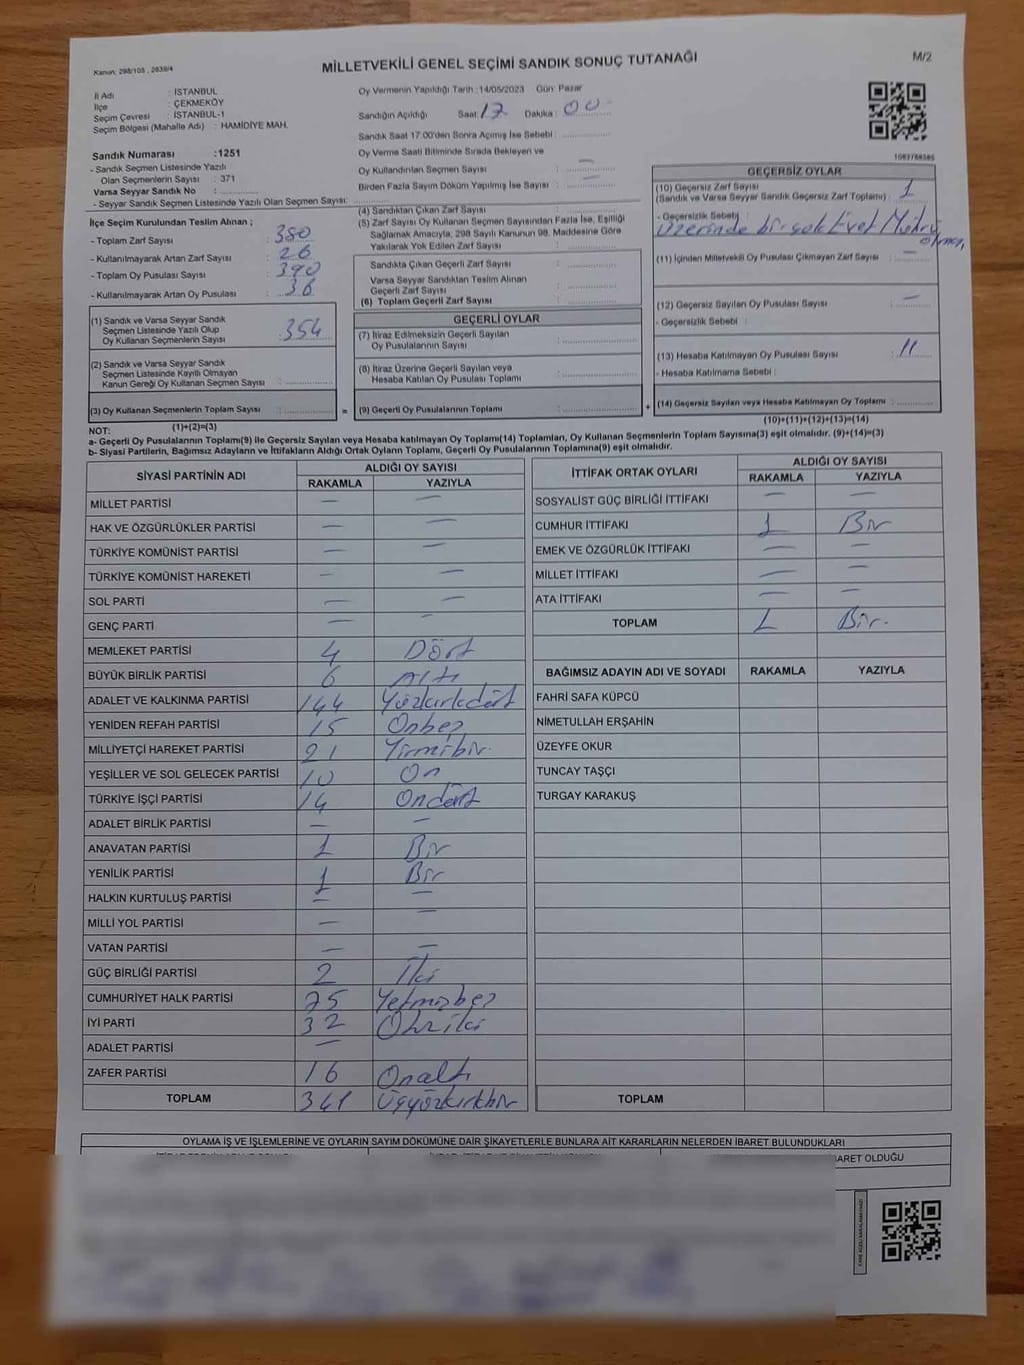 Kanun, 298/105 , 2839/4
MİLLETVEKİLİ GENEL SEÇİMİ SANDIK SONUÇ TUTANAĞI
M/2
İl Adı : İSTANBUL
İlçe : ÇEKMEKÖY
Seçim Çevresi : İSTANBUL-1
Seçim Bölgesi (Mahalle Adı) : HAMİDİYE MAH.
Sandık Numarası :1251
- Sandık Seçmen Listesinde Yazılı
Olan Seçmenlerin Sayısı : 371
Varsa Seyyar Sandık No :
- Seyyar Sandık Seçmen Listesinde Yazılı Olan Seçmen Sayısı:
Oy Vermenin Yapıldığı Tarih :14/05/2023 Gün: Pazar
Sandığın Açıldığı Saat: 17 Dakika : 00
Sandık Saat 17:00'den Sonra Açılmış İse Sebebi :
Oy Verme Saati Bitiminde Sırada Bekleyen ve
Oy Kullandırılan Seçmen Sayısı : —
Birden Fazla Sayım Döküm Yapılmış İse Sayısı : —
İlçe Seçim Kurulundan Teslim Alınan ;
- Toplam Zarf Sayısı : 380
- Kullanılmayarak Artan Zarf Sayısı : 26
- Toplam Oy Pusulası Sayısı : 390
- Kullanılmayarak Artan Oy Pusulası : 36
(1) Sandık ve Varsa Seyyar Sandık
Seçmen Listesinde Yazılı Olup
Oy Kullanan Seçmenlerin Sayısı : 354
(2) Sandık ve Varsa Seyyar Sandık
Seçmen Listesinde Kayıtlı Olmayan
Kanun Gereği Oy Kullanan Seçmen Sayısı :
(3) Oy Kullanan Seçmenlerin Toplam Sayısı :
(1)+(2)=(3)
(4) Sandıktan Çıkan Zarf Sayısı :
(5) Zarf Sayısı Oy Kullanan Seçmen Sayısından Fazla İse, Eşitliği
Sağlamak Amacıyla, 298 Sayılı Kanunun 98. Maddesine Göre
Yakılarak Yok Edilen Zarf Sayısı :
Sandıkta Çıkan Geçerli Zarf Sayısı :
Varsa Seyyar Sandıktan Teslim Alınan
Geçerli Zarf Sayısı :
(6) Toplam Geçerli Zarf Sayısı :
GEÇERLİ OYLAR
(7) İtiraz Edilmeksizin Geçerli Sayılan
Oy Pusulalarının Sayısı :
(8) İtiraz Üzerine Geçerli Sayılan veya
Hesaba Katılan Oy Pusulası Toplamı :
= (9) Geçerli Oy Pusulalarının Toplamı : +
GEÇERSİZ OYLAR
(10) Geçersiz Zarf Sayısı
(Sandık ve Varsa Seyyar Sandık Geçersiz Zarf Toplamı) : 1
- Geçersizlik Sebebi :
Üzerinde birçok Evet Mührü
(11) İçinden Milletvekili Oy Pusulası Çıkmayan Zarf Sayısı : —
(12) Geçersiz Sayılan Oy Pusulası Sayısı : —
- Geçersizlik Sebebi :
(13) Hesaba Katılmayan Oy Pusulası Sayısı : 11
- Hesaba Katılmama Sebebi :
(14) Geçersiz Sayılan veya Hesaba Katılmayan Oy Toplamı :
(10)+(11)+(12)+(13)=(14)
NOT:
a- Geçerli Oy Pusulalarının Toplamı(9) ile Geçersiz Sayılan veya Hesaba katılmayan Oy Toplamı(14) Toplamları, Oy Kullanan Seçmenlerin Toplam Sayısına(3) eşit olmalıdır. (9)+(14)=(3)
b- Siyasi Partilerin, Bağımsız Adayların ve İttifakların Aldığı Ortak Oyların Toplamı, Geçerli Oy Pusulalarının Toplamına(9) eşit olmalıdır.
SİYASİ PARTİNİN ADI ALDIĞI OY SAYISI
RAKAMLA YAZIYLA
MİLLET PARTİSİ — —
HAK VE ÖZGÜRLÜKLER PARTİSİ — —
TÜRKİYE KOMÜNİST PARTİSİ — —
TÜRKİYE KOMÜNİST HAREKETİ — —
SOL PARTİ — —
GENÇ PARTİ — —
MEMLEKET PARTİSİ 4 Dört
BÜYÜK BİRLİK PARTİSİ 6 Altı
ADALET VE KALKINMA PARTİSİ 144 Yüzkırkdört
YENİDEN REFAH PARTİSİ 15 Onbeş
MİLLİYETÇİ HAREKET PARTİSİ 21 Yirmibir.
YEŞİLLER VE SOL GELECEK PARTİSİ 10 On
TÜRKİYE İŞÇİ PARTİSİ 14 Ondört
ADALET BİRLİK PARTİSİ — —
ANAVATAN PARTİSİ 1 Bir
YENİLİK PARTİSİ 1 Bir
HALKIN KURTULUŞ PARTİSİ — —
MİLLİ YOL PARTİSİ — —
VATAN PARTİSİ — —
GÜÇ BİRLİĞİ PARTİSİ 2 İki
CUMHURİYET HALK PARTİSİ 75 Yetmişbeş
İYİ PARTİ 32 Otuziki
ADALET PARTİSİ —
ZAFER PARTİSİ 16 Onaltı
TOPLAM 341 Üçyüzkırkbir
İTTİFAK ORTAK OYLARI ALDIĞI OY SAYISI
RAKAMLA YAZIYLA
SOSYALİST GÜÇ BİRLİĞİ İTTİFAKI — —
CUMHUR İTTİFAKI 1 Bir
EMEK VE ÖZGÜRLÜK İTTİFAKI — —
MİLLET İTTİFAKI — —
ATA İTTİFAKI — —
TOPLAM 1 Bir.
BAĞIMSIZ ADAYIN ADI VE SOYADI RAKAMLA YAZIYLA
FAHRİ SAFA KÜPCÜ
NİMETULLAH ERŞAHİN
ÜZEYFE OKUR
TUNCAY TAŞÇI
TURGAY KARAKUŞ
TOPLAM
OYLAMA İŞ VE İŞLEMLERİNE VE OYLARIN SAYIM DÖKÜMÜNE DAİR ŞİKAYETLERLE BUNLARA AİT KARARLARIN NELERDEN İBARET BULUNDUKLARI
BARET OLDUĞU